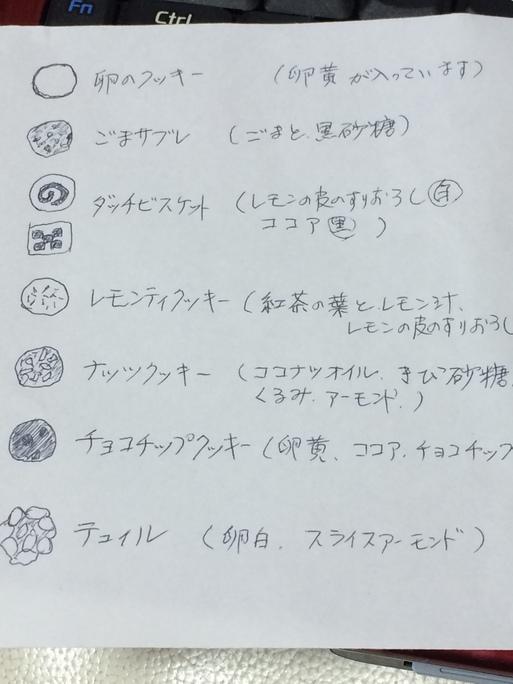 Fn
Ctrl
卵のクッキー （卵黄が入っています）
ごまサブレ （ごまと、黒砂糖）
ダッチビスケット （レモンの皮のすりおろし 白
ココア 黒 ）
レモンティクッキー （紅茶の葉と、レモン汁、
レモンの皮のすりおろし
ナッツクッキー （ココナツオイル、きび砂糖、
くるみ、アーモンド、）
チョコチップクッキー （卵黄、ココア、チョコチップ
テュイル （卵白、スライスアーモンド）